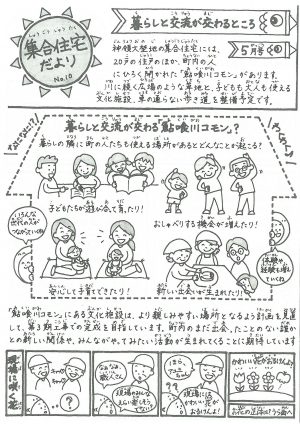 集合住宅
だより
No.10
暮らしと交流が交わるところ
5月号
神領大埜地の集合住宅には、
20戸の住戸のほか、町内の人
にひろく開かれた「鮎喰川コモン」があります。
川に続く広場のような草地と、子どもも大人も使える
文化施設、車の通らない歩き道も整備予定です。
暮らしと交流が交わる「鮎喰川コモン」?
暮らしの隣に町の人たちも使える場所があるとどんなことが起こる?
子どもたちが混ざり合って育ったり!
おしゃべりする機会が増えたり!
いろんな
世代の人が
つながっていくね
安心して子育てできたり!
新しい出会いが生まれたり!
体験や
経験も増え
ていくね
「鮎喰川コモン」にある文化施設は、より親しみやすい場所となるよう計画を見直
して、第3期工事での完成を目指しています。町内のまだ出会ったことのない誰か
との新しい関係や、みんながやってみたい活動が生まれてくることを期待しています
現場に咲く花
かわいい花がさいたよ